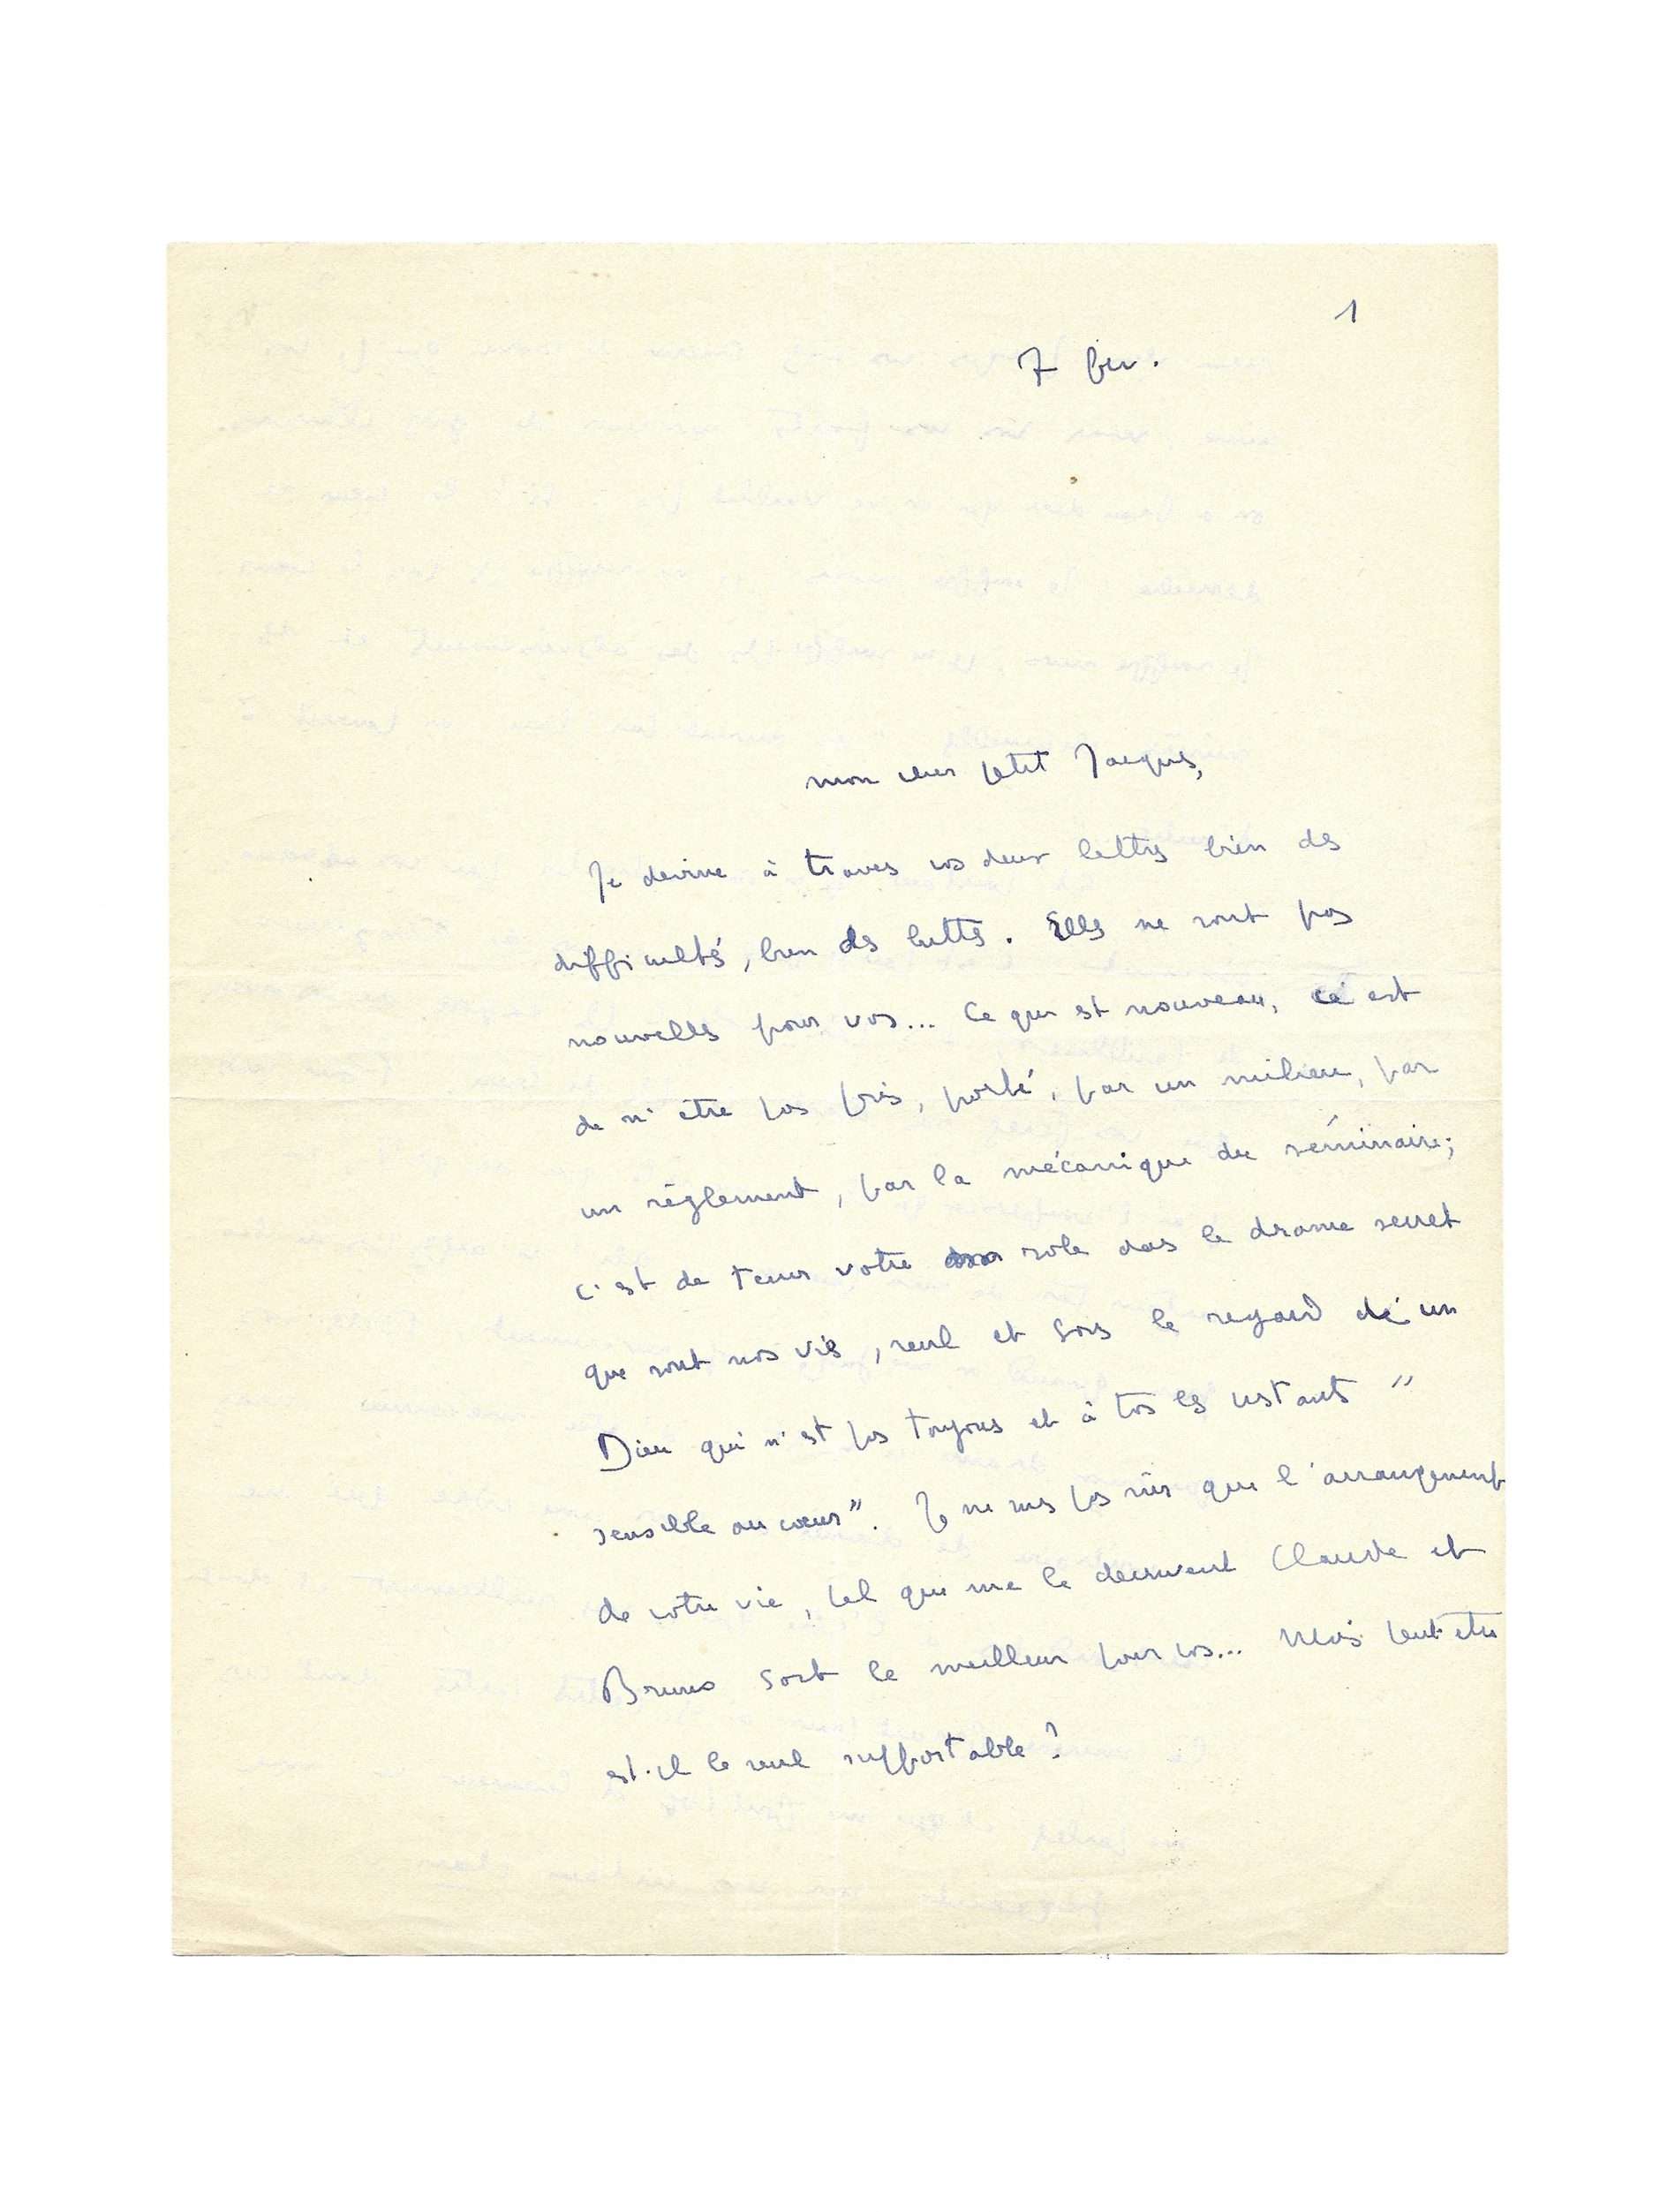 1
7 fev.
mon cher petit Jacques,
Je devine à travers vos deux lettres bien des
difficultés, bien des luttes. Elles ne sont pas
nouvelles pour vous... Ce qui est nouveau, c'est
de n'être pas pris, porté, par un milieu, par
un règlement, par la mécanique du séminaire;
c'est de tenir votre role dans le drame secret
que sont nos vies, seul et sous le regard d'un
Dieu qui n'est pas toujours et à tous les instants "
sensible au cœur". Je ne suis pas sûr que l'arrangement
de votre vie, tel que me le decrivent Claude et
Bruno soit le meilleur pour vous... Mais peut-etre
est-il le seul supportable?